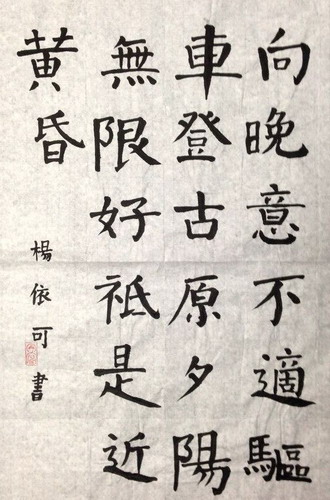 向晚意不適驅
車登古原夕陽
無限好祇是近
黄昏
楊依可書